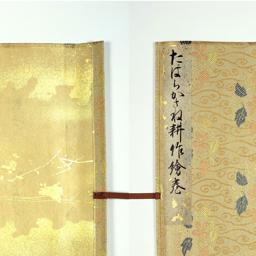 たはらかさね耕作繪巻